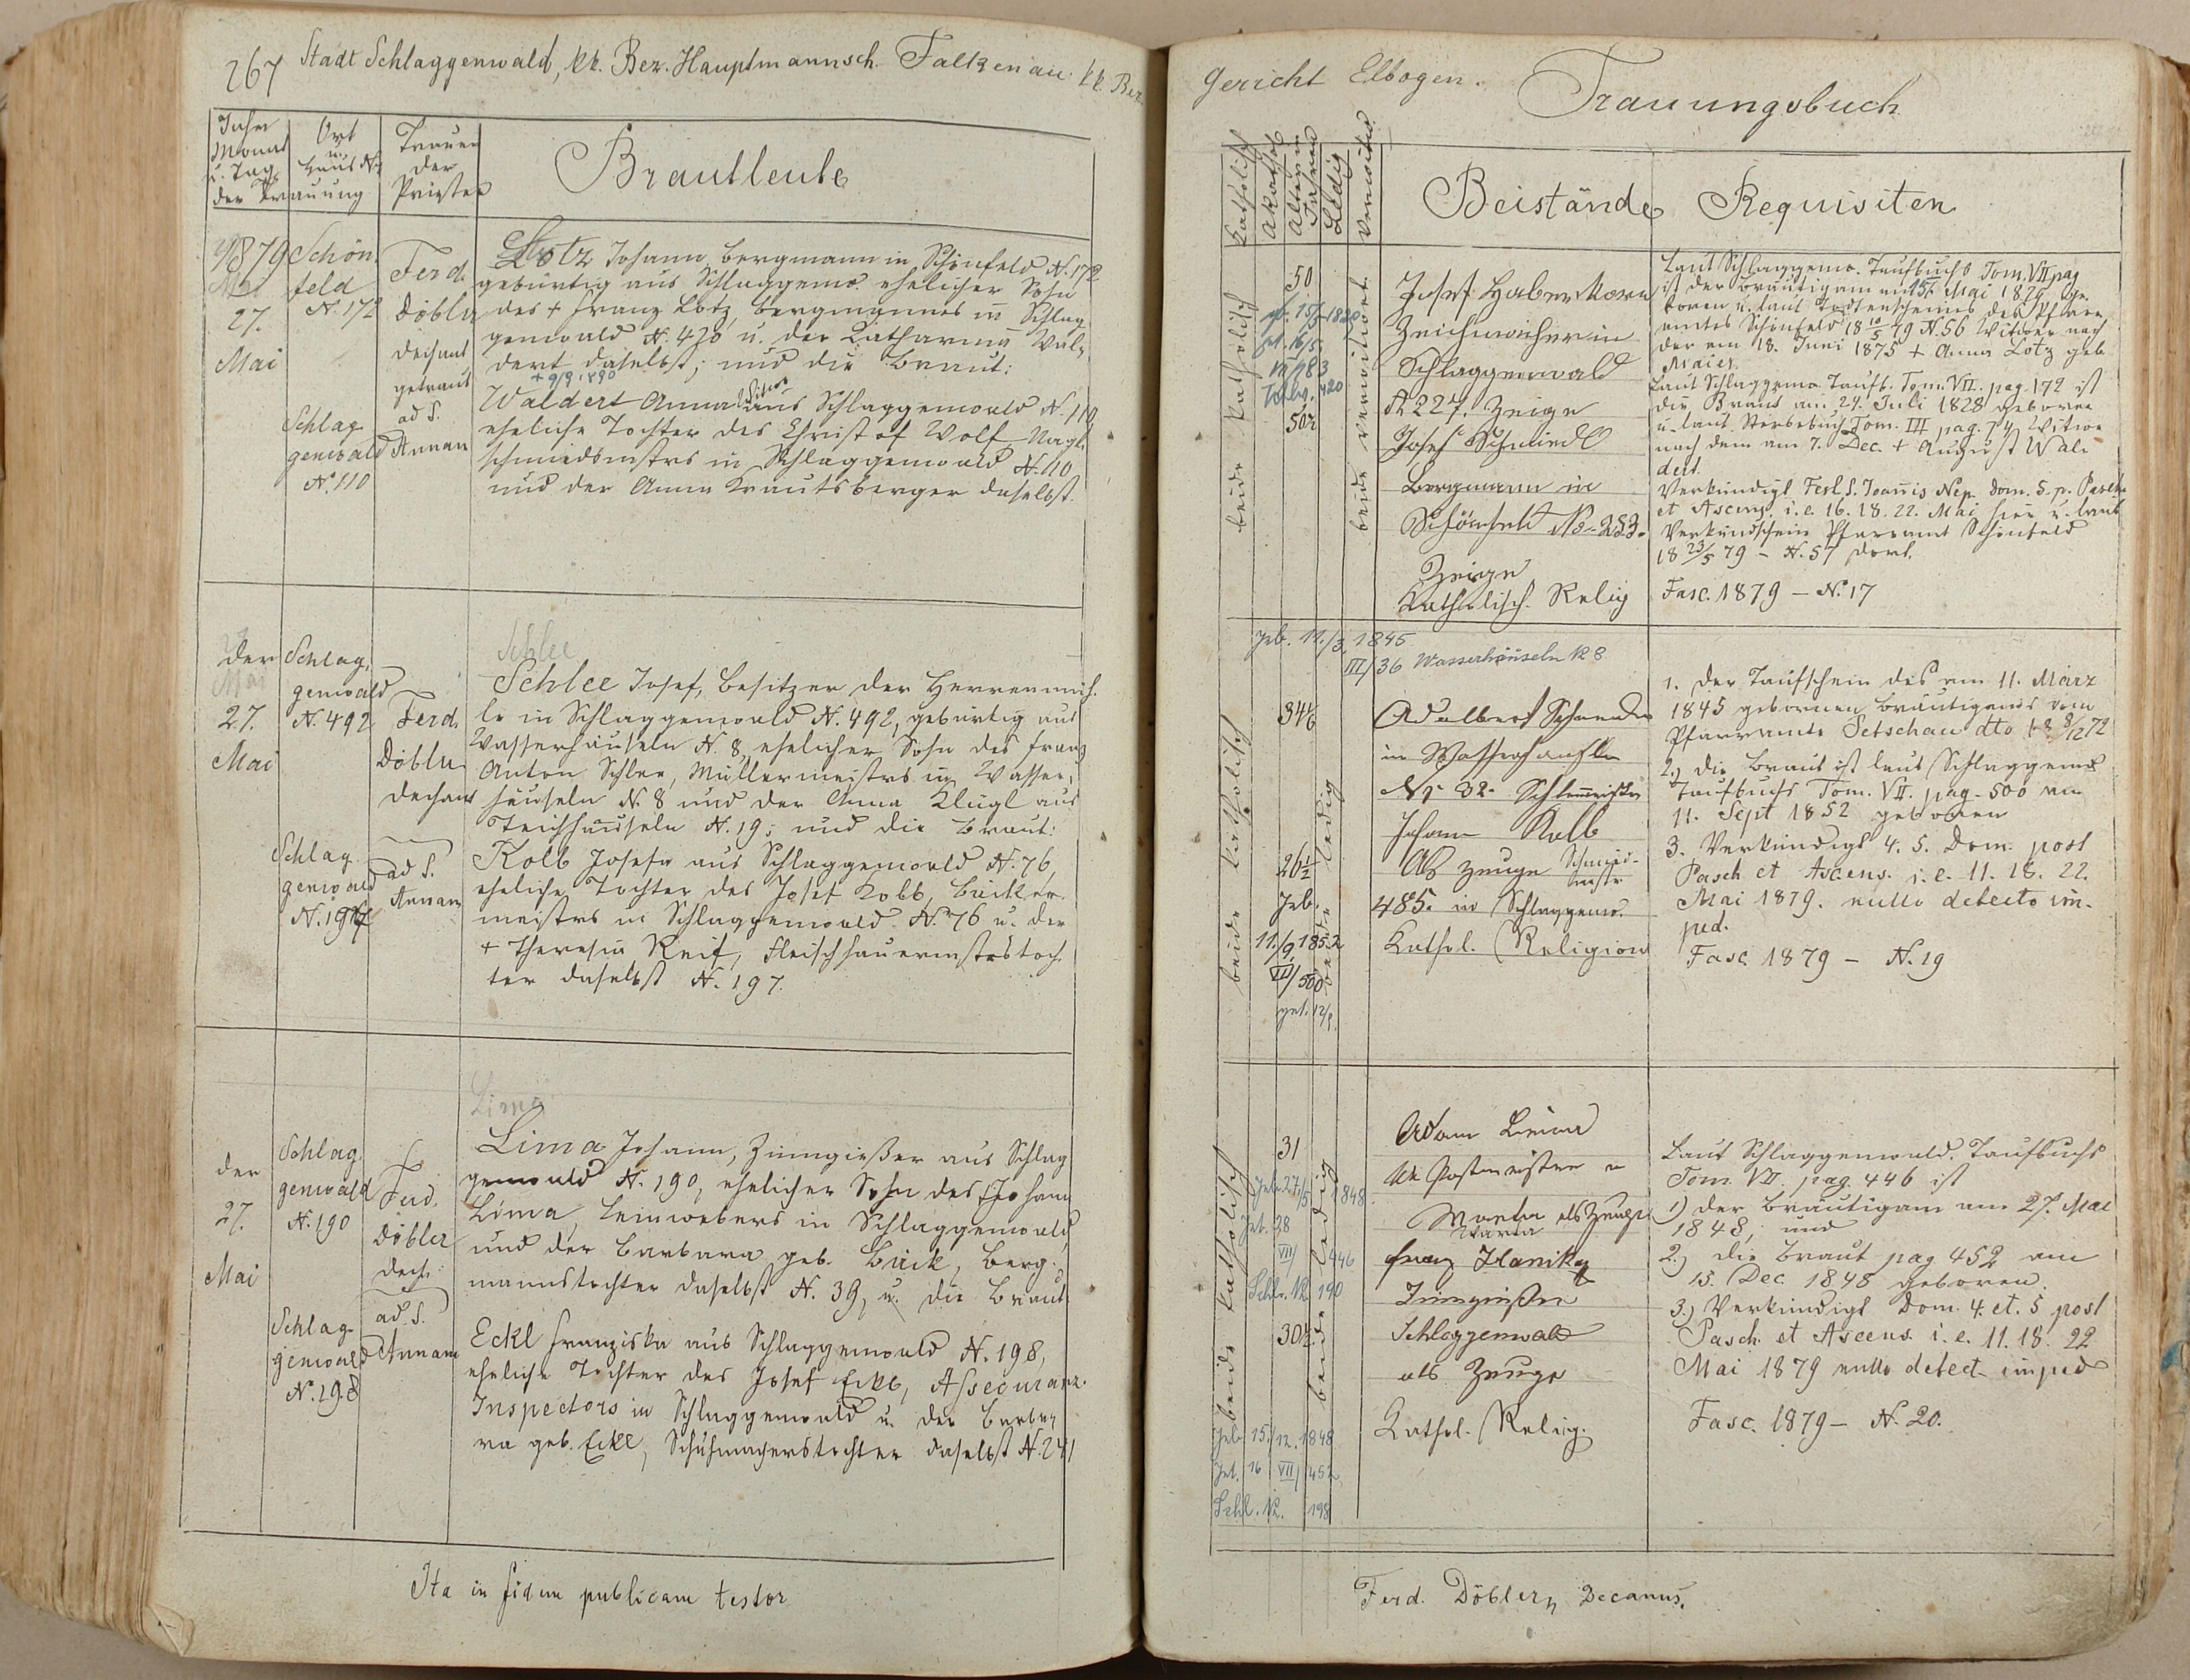 267 Stadt Schlaggenwald, kk. Bez. Hauptmannsch. Falkenau kk. Bez.
Jahr
Monat
u. Tag
der Trauung
Ort
u.
Haus N.
Trauender
Priester
Brautleute
1879
27.
Mai
Schön
feld
N. 172
Schlag
genwald
N. 110
Ferd.
Döbler
Dechant
getraut
ad S.
Annam
Lotz Johann, Bergmann in Schönfeld N. 172
gebürtig aus Schlaggenw. ehelicher Sohn
des + Franz Lotz, Bergmannes in Schlag
genwald N. 470 u. der Katharina Wal,
dert daselbst; und die Braut:
+ 9/9 1890
Waldert Anna Witwe aus Schlaggenwald N. 110
eheliche Tochter des Christof Wolf Nagl,
schmiedmstrs in Schlaggenwald N. 110
und der Anna Krautsberger daselbst.
der
27.
Mai
Schlag,
genwald
N. 492
Schlag
genwald
N. 197
Ferd.
Döbler
Dechant
ad S.
Annam
Schlee
Schlee Josef, Besitzer der Herrenmüh,
le in Schlaggenwald N. 492, gebürtig aus
Wasserhäuseln N. 8, ehelicher Sohn des Franz
Anton Schlee, Müllermeistrs in Wasser,
häuseln N. 8 und der Anna Klügl aus
Teichhäuseln N. 19; und die Braut:
Kolb Josefa aus Schlaggenwald N. 76,
eheliche Tochter des Josef Kolb, Bäcker,
meistrs in Schlaggenwald N. 76 u. der
+ Theresia Reif, Fleischhauermstrstoch
ter daselbst N. 197.
der
27.
Mai
Schlag,
genwald
N. 190
Schlag
genwald
N. 198
Ferd.
Döbler
Dech.
ad. S.
Annam
Lima
Lima Johann, Zinngießer aus Schlag
genwald N. 190, ehelicher Sohn des Johann
Lima, Leinwebers in Schlaggenwald,
und der Barbara geb. Bück, Berg,
mannstochter daselbst N. 39, u. die Braut
Eckl Franziska aus Schlaggenwald N. 198,
eheliche Tochter des Josef Eckl, Assecuranz
Inspectors in Schlaggenwald u. der Barba,
ra geb. Eckl, Schuhmacherstochter daselbst N. 241
Ita in fidem publicam testor
Gericht Elbogen. Trauungsbuch
Katholisch
Akathol
Alter in
Jahren
Ledig
Verwitwet
Beistände
Requisiten
beide katholisch
50
50 3/4
beide verwitwet
Josef Haberkorn
Zeichmacher in
Schlaggenwald
N 227. Zeuge
Josef Schmiedl
Bergmann in
Schönfeld No. 233.
Zeuge
Katholisch. Relig
Laut Schlaggenw. Taufbuchs Tom. VII pag
ist der Bräutigam am 15. Mai 1829 ge,
boren u. laut Todtenscheines des Pfarr
amtes Schönfeld 18 10/5 79 N. 56 Witwer nach
der am 18. Juni 1875 + Anna Lotz geb
Maier.
Laut Schlaggenw. Taufb. Tom. VII. pag. 172 ist
die Braut am 24. Juli 1828 geboren
u. laut Sterbebuch Tom. III pag. 74 Witwe
nach dem am 7. Dec. + August Wal
dert.
Verkündigt Fest S. Joannis Nep. Dom. 5. p. Pasch
et Ascens. i. e. 16. 18. 22. Mai hier u. laut
Verkündschein Pfarramt Schönfeld
18 23/5 79 - N. 57 dort.
Fasc. 1879 - N. 17
geb. 11./3. 1845
III/36 Wasserhäuseln N 8
beide katholisch
34 1/6
26 1/2
geb.
11./9. 1852
VII/500
get. 12/9.
beide ledig
Adalbert
in Wasserhäuseln
Nr. 32.
Johann Kolb
Als Zeuge Schmied-
meistr
485. in Schlaggenw.
Kathol. Religion
1. Der Taufschein des am 11. März
1845 gebornen Bräutigams vom
Pfarramte Petschau dto
2.) Die Braut ist laut Schlaggenw
Taufbuchs Tom. VII. pag. 500 am
11. Sept 1852 geboren
3. Verkündigt 4. 5. Dom. post
Pasch et Ascens. i. e. 11. 18. 22.
Mai 1879. nullo detecto im-
ped.
Fasc. 1879 - N. 19
beide katholisch
31
geb. 27./5 1848
get. 28
VII/446
Schl. N. 190
30 1/2
beide ledig
geb. 15./12. 1848
get. 16 VII/452
Schl. N. 198
Adam Lima
kk Postmeister in
als Zeuge
Franz Hanika
Zinngießer
Schlaggenwald
als Zeuge
Kathol. Relig.
Laut Schlaggenwald. Taufbuchs
Tom. VII. pag. 446 ist
1) Der Bräutigam am 27. Mai
1848; und
2.) die Braut pag 452 am
15. Dec. 1848 geboren.
3.) Verkündigt Dom. 4. et. 5 post
Pasch. et Ascens. i. e. 11. 18. 22
Mai 1879 nullo detect imped
Fasc. 1879 - N. 20.
Ferd. Döbler, Decanus.